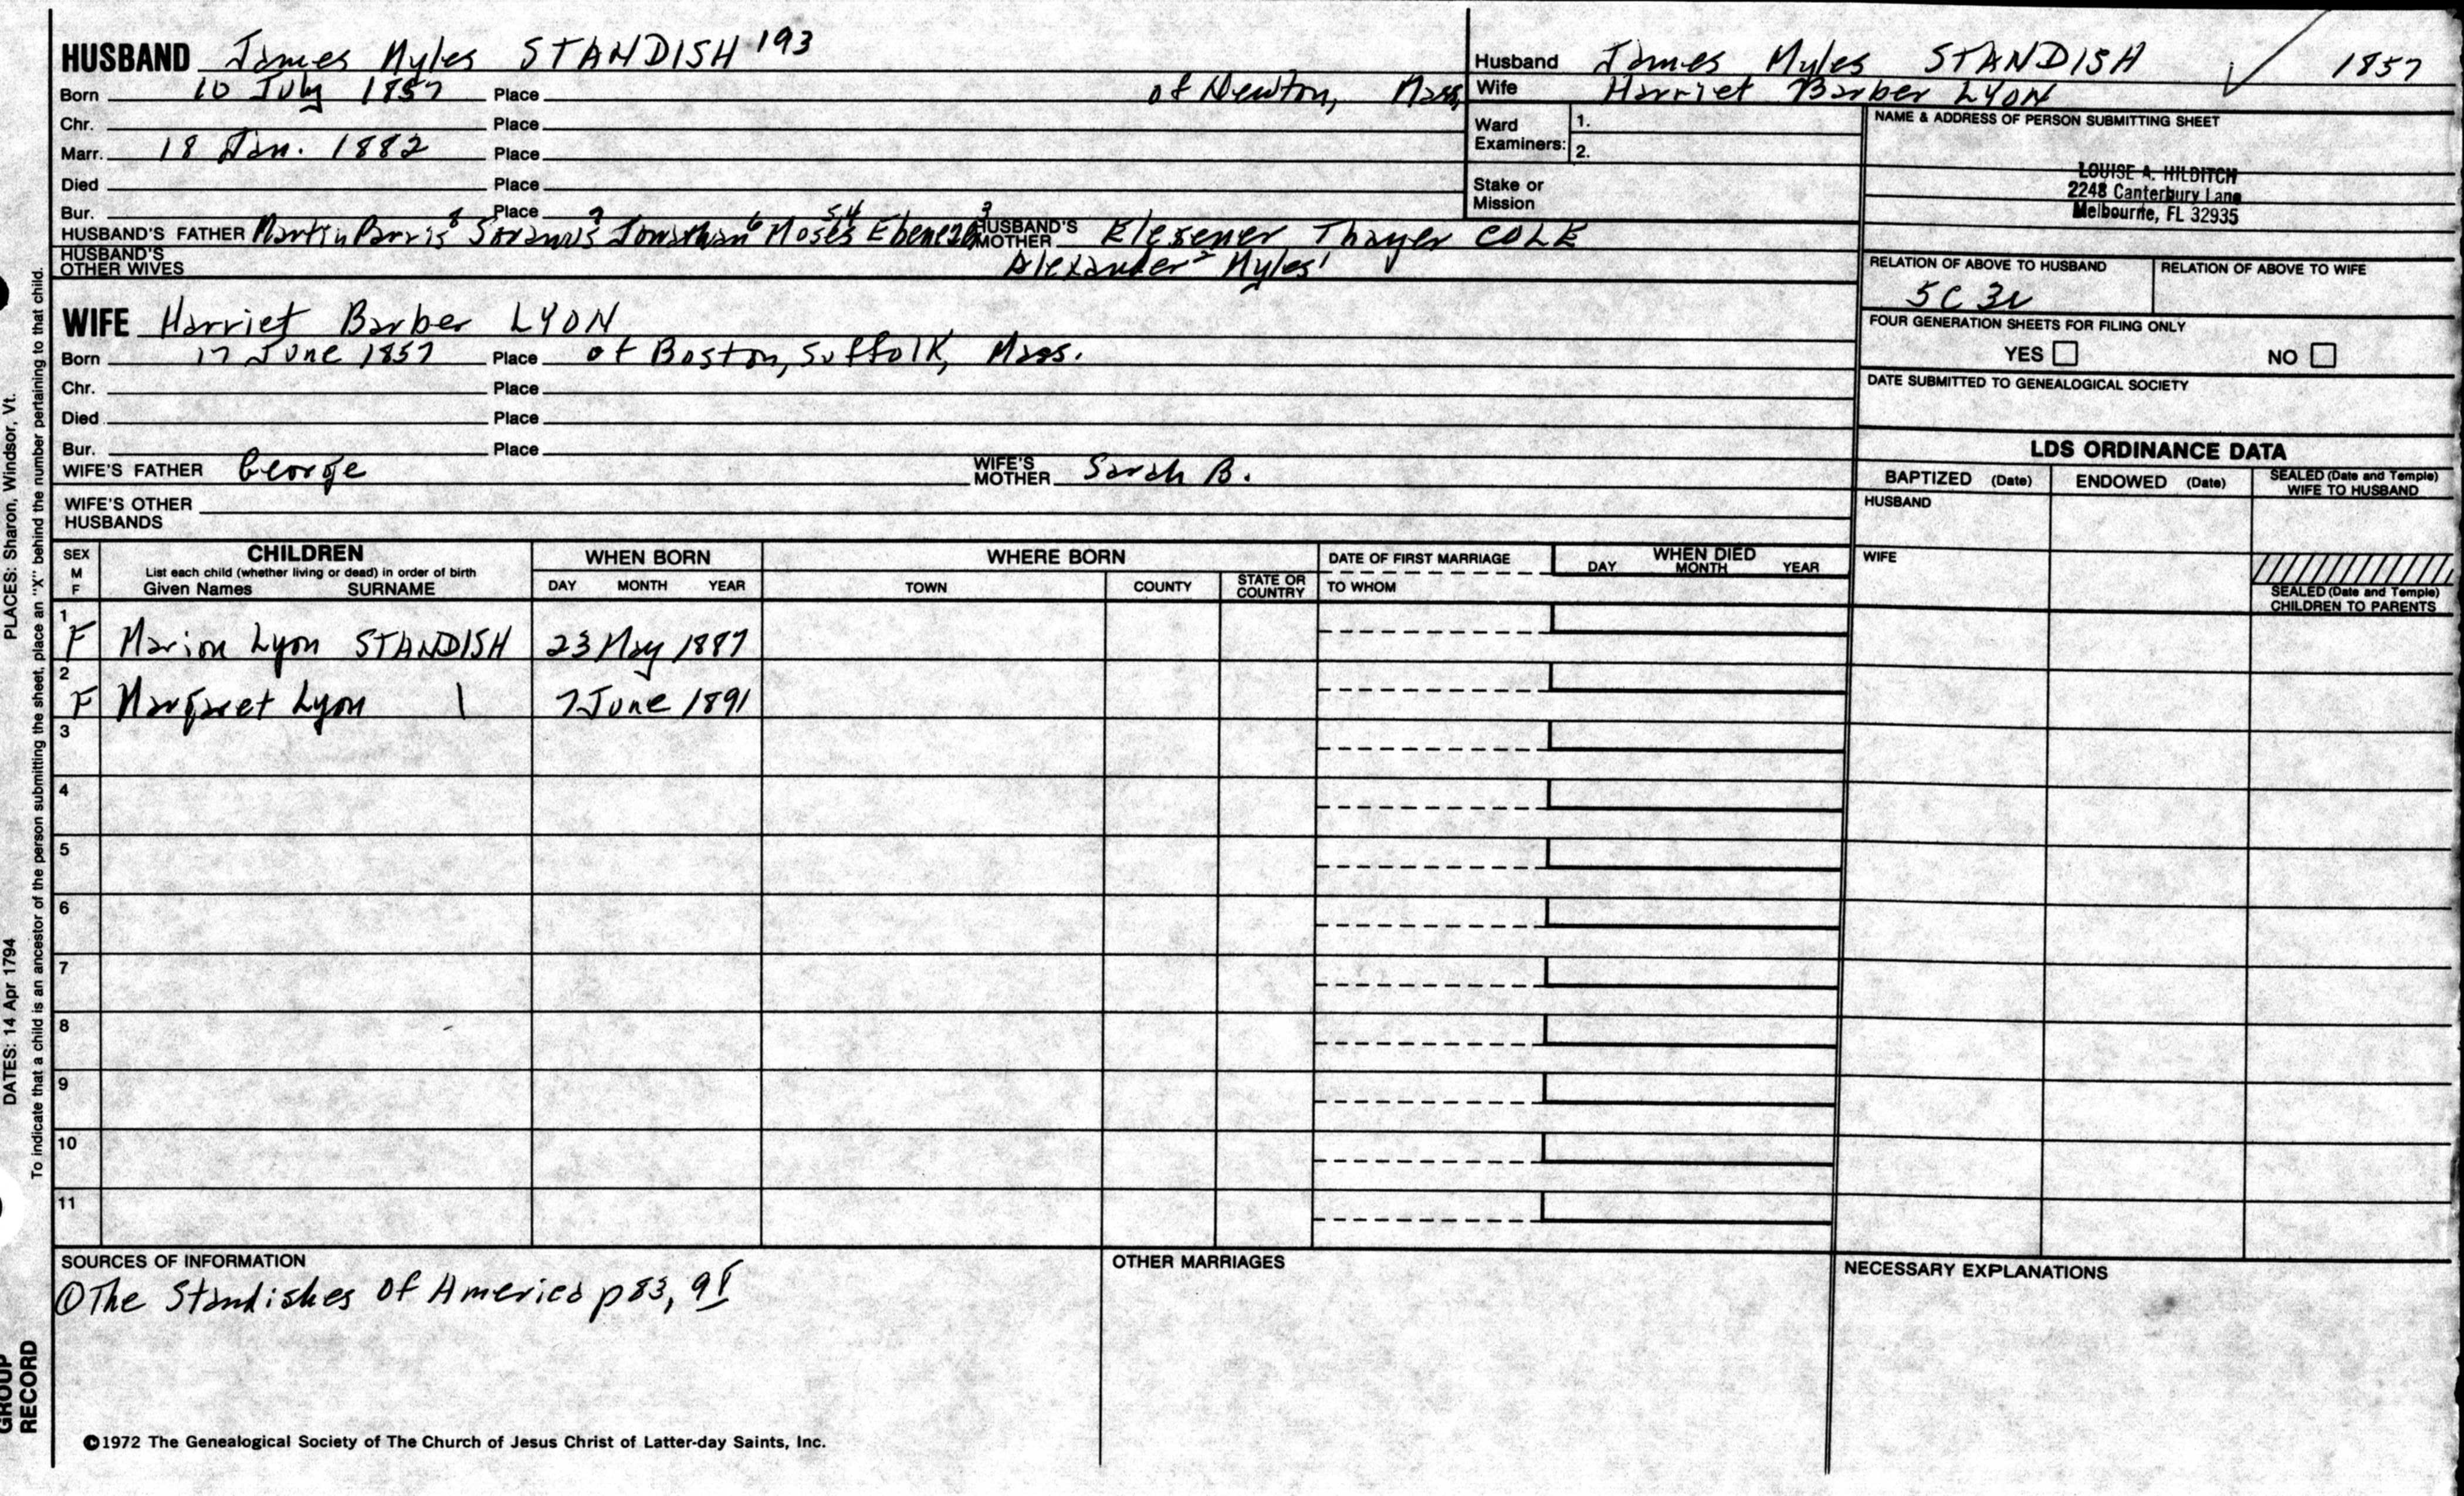 HUSBAND James Myles STANDISH 193
Born 10 July 1857 Place of Newton, Mass,
Chr. Place
Marr. 18 Jan. 1882 Place
Died Place
Bur. Place
HUSBAND'S FATHER Martin Parris 8 Soranus 7 Jonathan 6 Moses 5 4 Ebenezer 3 HUSBAND'S MOTHER Thayer COLE
HUSBAND'S OTHER WIVES Alexander 2 Myles 1
WIFE Harriet Barber LYON
Born 17 June 1857 Place of Boston, Suffolk, Mass.
Chr. Place
Died Place
Bur. Place
WIFE'S FATHER George WIFE'S MOTHER Sarah B.
WIFE'S OTHER HUSBANDS
Husband James Myles STANDISH ✓ 1857
Wife Harriet Barber LYON
Ward Examiners: 1.
2.
Stake or Mission
NAME & ADDRESS OF PERSON SUBMITTING SHEET
LOUISE A. HILDITCH
2248 Canterbury Lane
Melbourne, FL 32935
RELATION OF ABOVE TO HUSBAND RELATION OF ABOVE TO WIFE
5C 3r
FOUR GENERATION SHEETS FOR FILING ONLY
YES NO
DATE SUBMITTED TO GENEALOGICAL SOCIETY
LDS ORDINANCE DATA
BAPTIZED (Date) ENDOWED (Date) SEALED (Date and Temple) WIFE TO HUSBAND
HUSBAND
WIFE
SEALED (Date and Temple) CHILDREN TO PARENTS
SEX M F CHILDREN WHEN BORN WHERE BORN DATE OF FIRST MARRIAGE WHEN DIED
List each child (whether living or dead) in order of birth
Given Names SURNAME DAY MONTH YEAR TOWN COUNTY STATE OR COUNTRY TO WHOM DAY MONTH YEAR
1 F Marion Lyon STANDISH 23 May 1887
2 F Margaret Lyon | 7 June 1891
3
4
5
6
7
8
9
10
11
SOURCES OF INFORMATION
① The Standishes of America p 83, 
OTHER MARRIAGES
NECESSARY EXPLANATIONS
©1972 The Genealogical Society of The Church of Jesus Christ of Latter-day Saints, Inc.
PLACES: Sharon, Windsor, Vt.
DATES: 14 Apr 1794
To indicate that a child is an ancestor of the person submitting the sheet, place an "X" behind the number pertaining to that child.
GROUP
RECORD